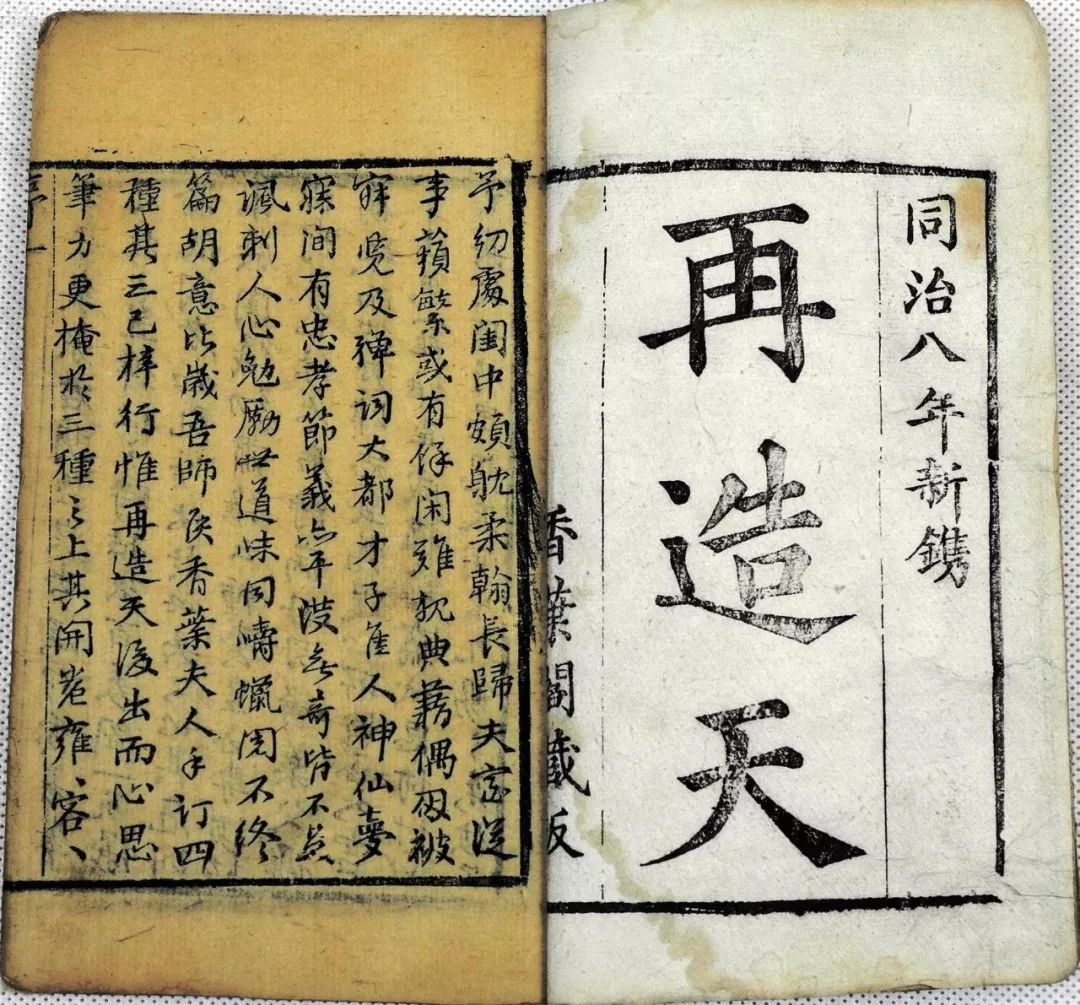 同治八年新鐫
再造天
香葉閣藏板
予幼處閨中頗躭柔翰長歸夫室從
事蘋蘩或有閑雖典藉偶被
覽及彈詞大都才子隹人神仙夢
寐間有忠孝節義亦平淡無奇皆不足
諷刺人心勉勵世道味同嚼蠟閱不終
篇胡意比歲吾師侯香葉夫人手訂四
種其三已梓行惟再造天後出而心思
筆力更掩於三種之上其開卷雍〻容〻
序 一